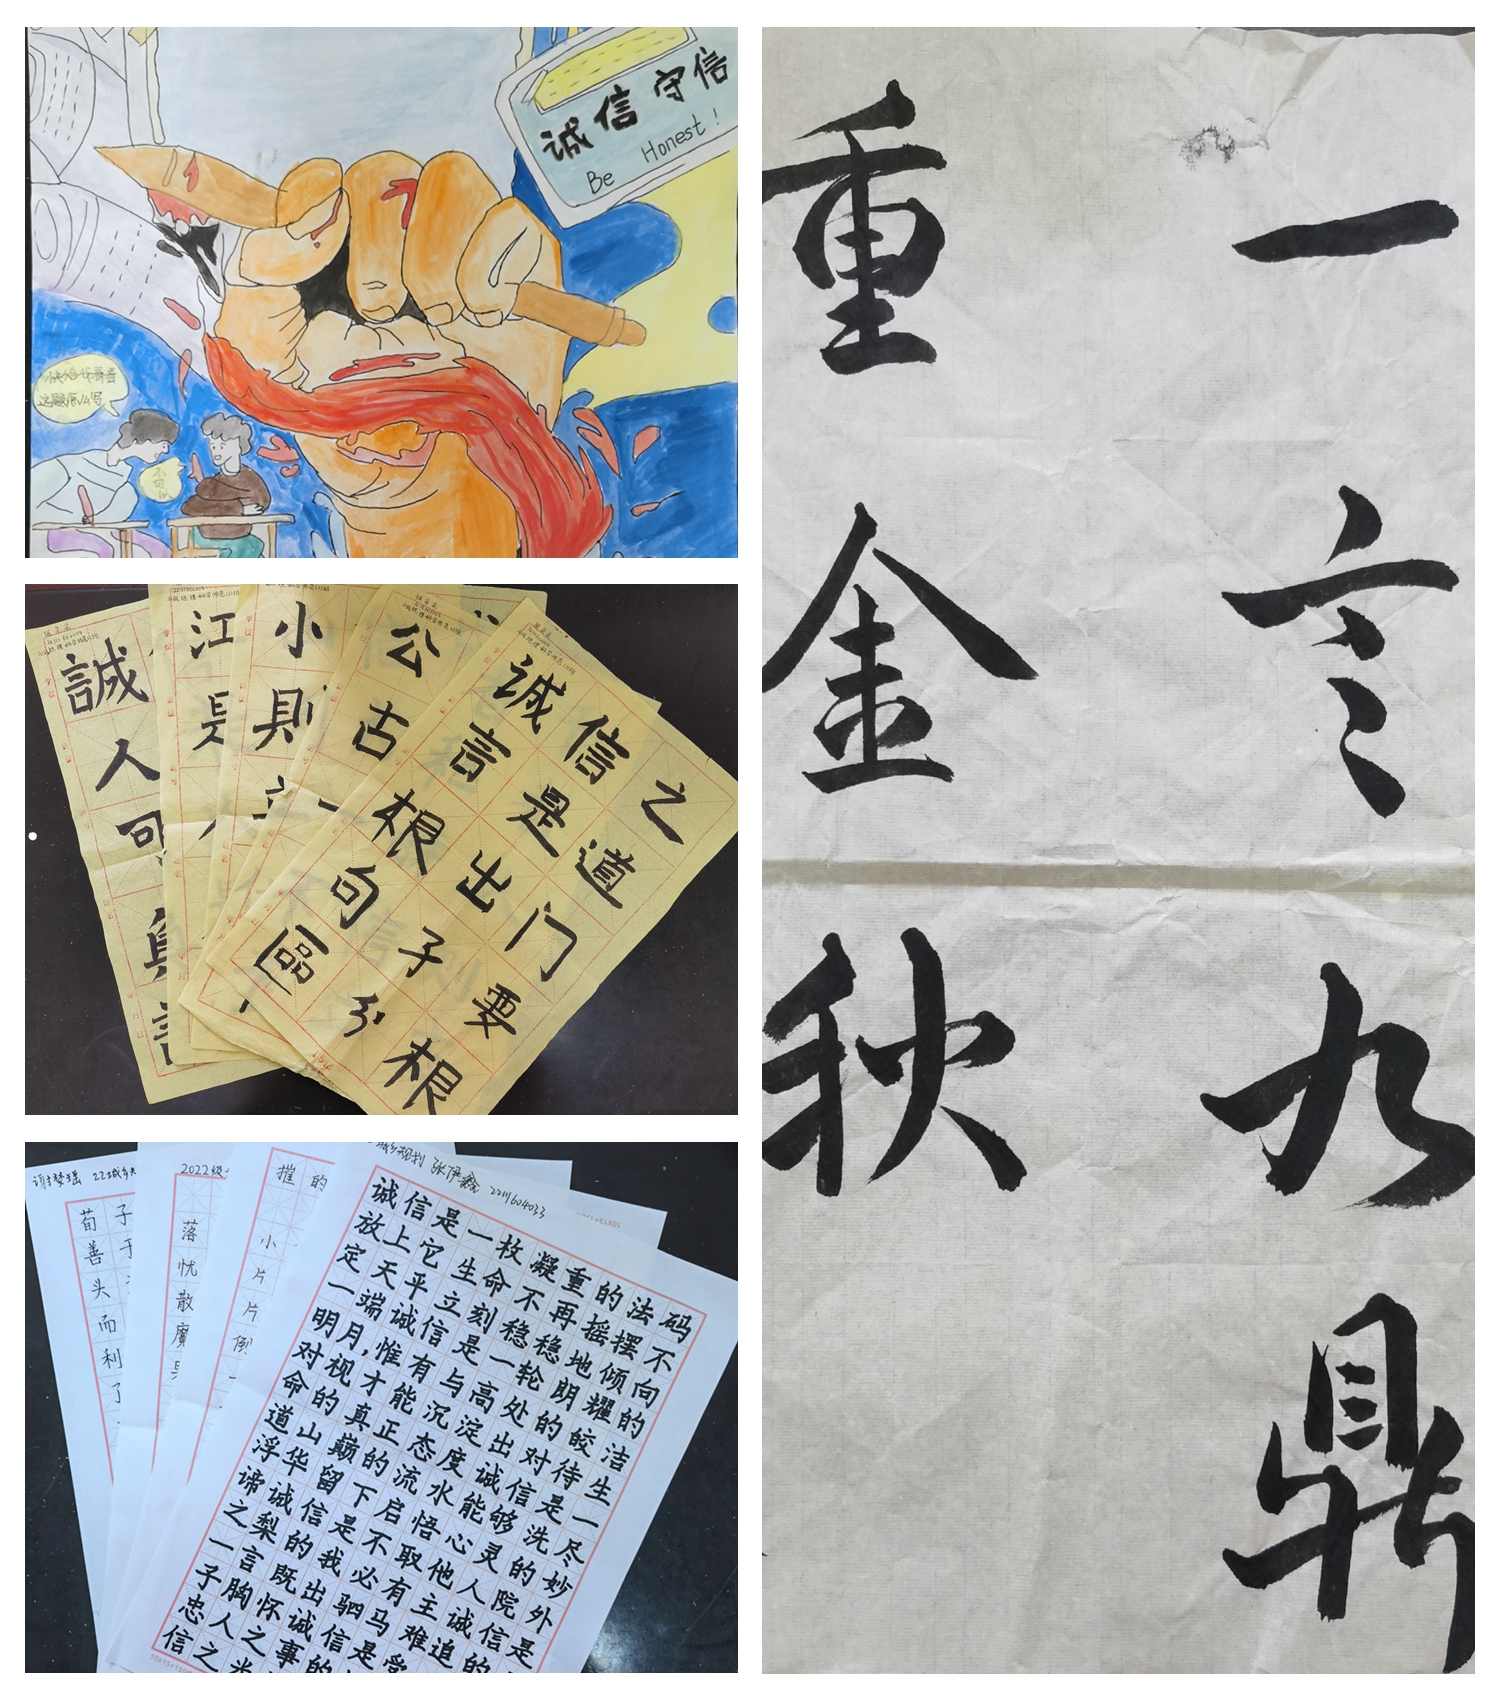 诚信守信
Be Honest!
不可以
一言九鼎
重金秋
誠
人
可
江
小
公
古
诚信之
言是道
根出门
句子要
區分根
2022级
荀子
善于
头
而
利
落
忧
散
摧的
小
片
片
城乡规划 2211604033
诚信是一枚凝重的法码
放上它生命不再摇摆不
定天平立刻稳稳地倾向
一端诚信是一轮朗耀的
明月,惟有与高处的皎洁
对视才能沉淀出对待生
命的真正态度诚信是一
道山巅的流水能够洗尽
浮华留下启悟心灵的妙
谛诚信是不取他人院外
之梨的我必有主诚信是
一言既出驷马难追的
子胸怀诚信是受
忠人之事的
信之光